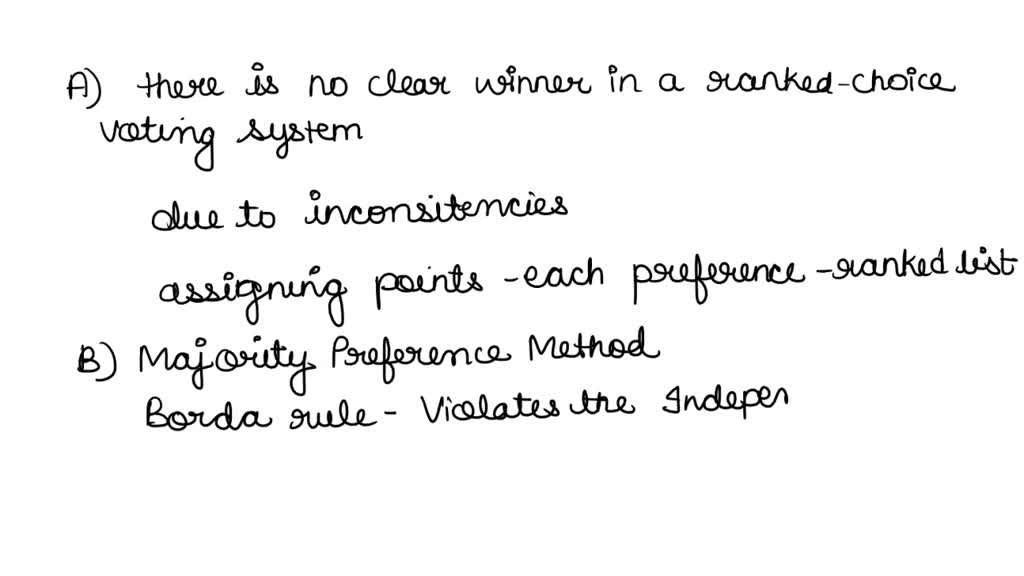 A) there is no clear winner in a ranked-choice
voting system
due to inconsitencies
assigning points - each preference - ranked list
B) Majority Preference Method
Borda rule - Violates the Indepen